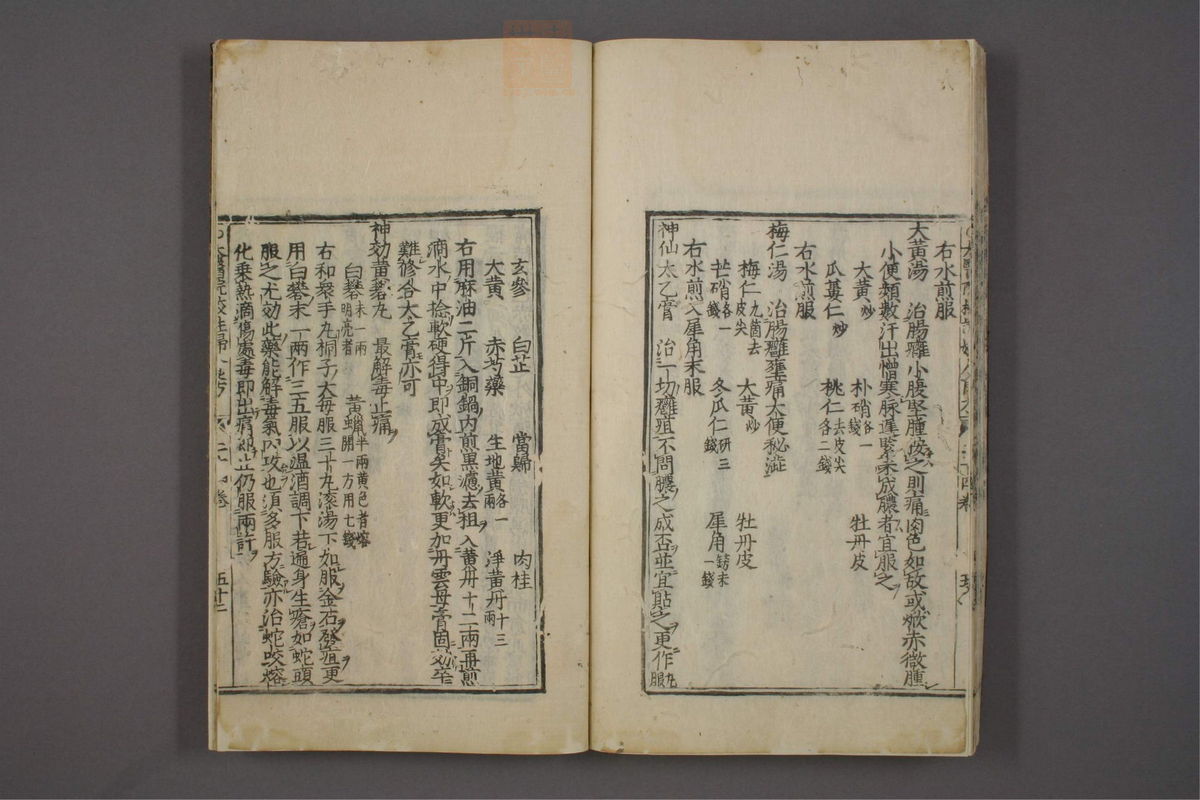 右水煎服
大黄湯　治腸癰小腹堅腫按之則痛肉色如故或焮赤微腫
小便頻數汗出憎寒脉遅緊未成膿者宜服之
大黄炒　朴硝各一錢　牡丹皮
瓜蔞仁炒　桃仁去皮尖各二錢
右水煎服
梅仁湯　治腸癰壅痛大便秘澁
梅仁九箇去皮尖　大黄炒　牡丹皮
芒硝各一錢　冬瓜仁研三錢　犀角鎊末一錢
右水煎入犀角末服
神仙太乙膏　治一切癰疽不問膿之成否並宜貼之更作丸服
玄參　白芷　當歸　肉桂
大黄　赤芍藥　生地黄各一兩　淨黄丹十三兩
右用麻油二斤入銅鍋内煎黒濾去粗入黄丹十二兩再煎
滴水中捻軟硬得中即成膏矣如軟更加丹雲母膏固必卒
難修合太乙膏亦可
神効黄礬丸　最解毒止痛
白礬末一兩明亮者　黄蠟半兩黄色者熔開一方用七錢
右和衆手丸桐子大毎服三十丸滚湯下如服金石發疽更
用白礬末一兩作三五服以温酒調下若遍身生瘡如蛇頭
服之尤効此藥能解毒氣内攻也須多服方驗亦治蛇咬熔
化乗熱滴傷處毒即出痛即止仍服兩許
五十二